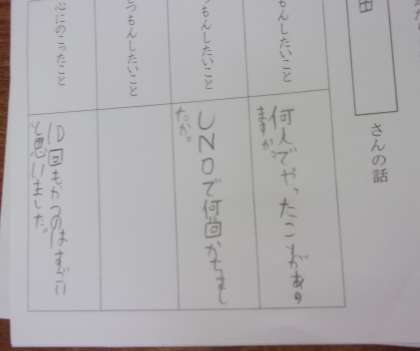 田
さんの話
もんしたいこと
何人でやったこがあり
ますか。
つもんしたいこと
UNOで何回かちまし
たか。
つもんしたいこと
心にのこったこと
10回もかつのはすごい
と思いました。